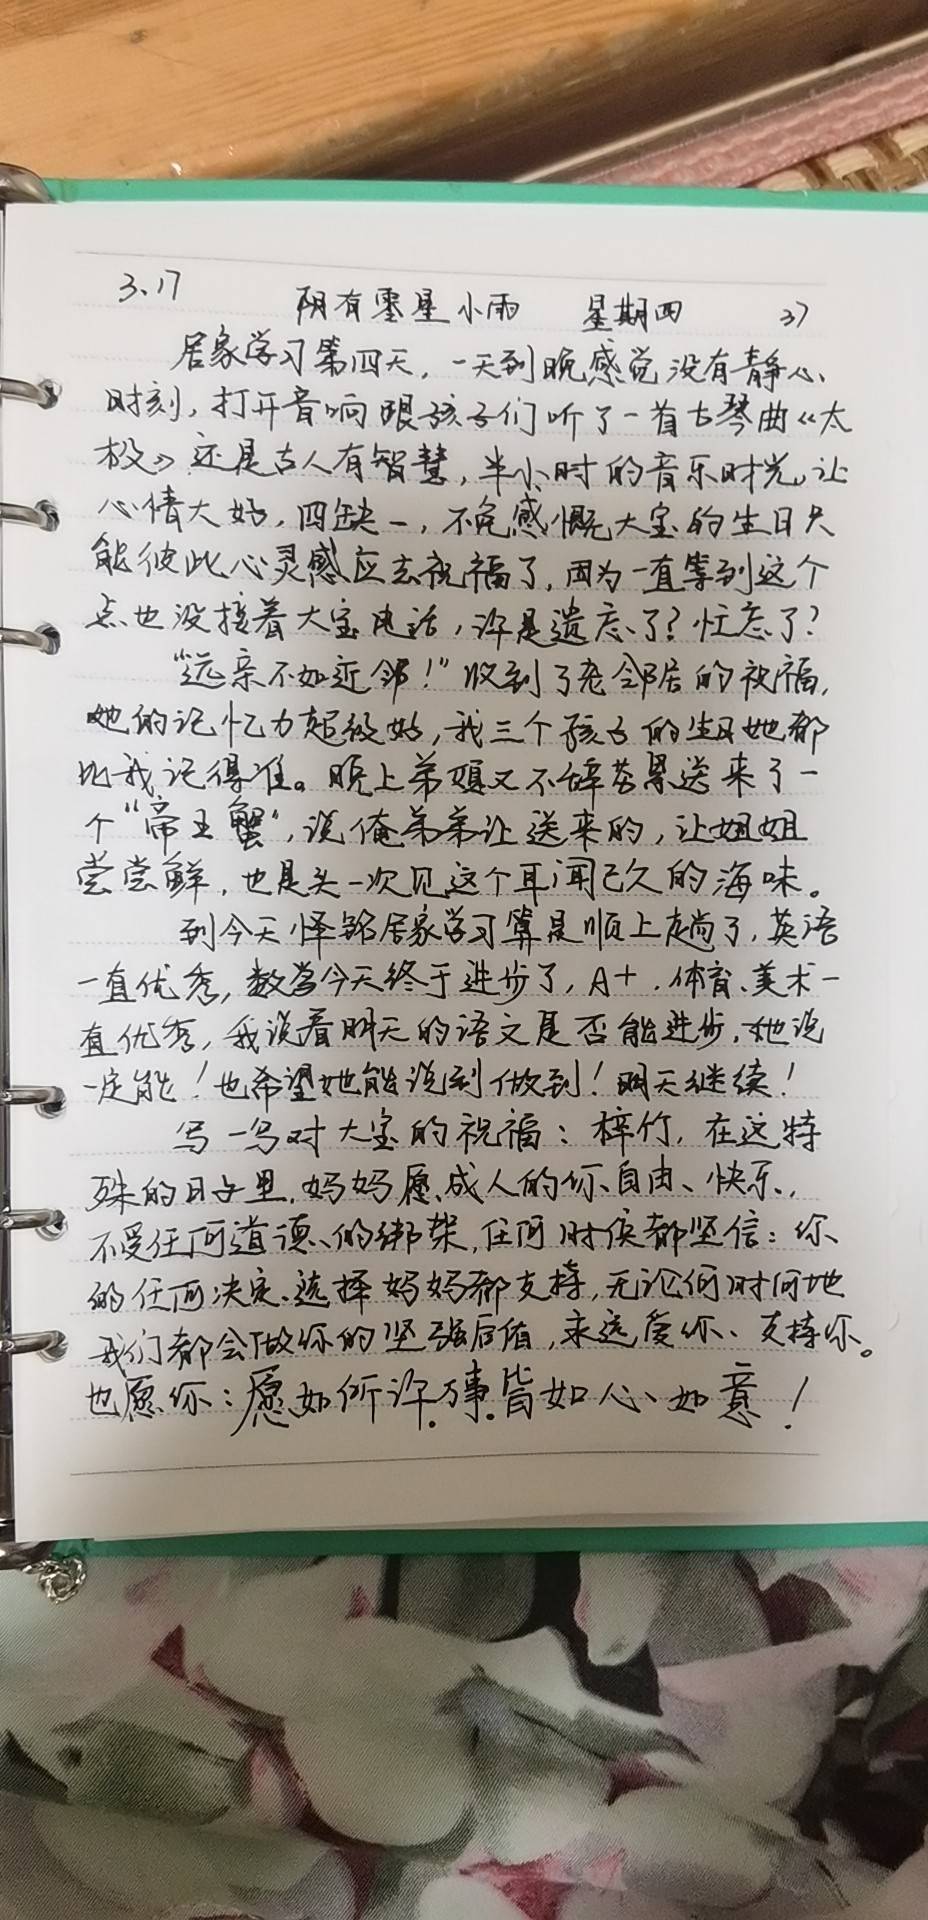 3.17 阴有零星小雨 星期四 37
居家学习第四天，一天到晚感觉没有静心
时刻，打开音响跟孩子们听了一首古琴曲《太
极》还是古人有智慧，半小时的音乐时光，让
心情大好，四缺一，不免感慨大宝的生日只
能彼此心灵感应去祝福了，因为一直等到这个
点也没接着大宝电话，许是遗忘了？忙忘了？
“远亲不如近邻！”收到了老邻居的祝福，
她的记忆力超级好，我三个孩子的生日她都
比我记得准。晚上弟媳又不辞劳累送来了一
个“帝王蟹”，说俺弟弟让送来的，让姐姐
尝尝鲜，也是头一次见这个耳闻已久的海味。
到今天怿居家学习算是顺上趟了，英语
一直优秀，数学今天终于进步了，A+，体育、美术一
直优秀，我说看明天的语文是否能进步，她说
一定能！也希望她能说到做到！明天继续！
写一写对大宝的祝福：梓竹，在这特
殊的日子里，妈妈愿成人的你自由、快乐，
不受任何道德的绑架，任何时侯都坚信：你
的任何决定、选择妈妈都支持，无论何时何地
我们都会做你的坚强后盾，永远爱你、支持你。
也愿你：愿如所许，万事皆如心如意！